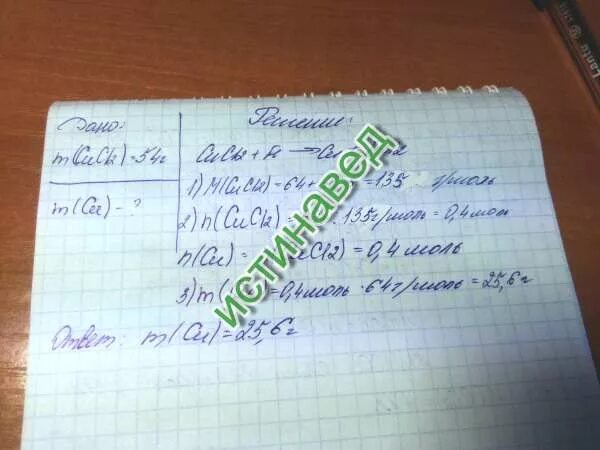 Дано:
Решение:
m(CuCl2)=54г
CuCl2 + Fe → Cu
1) M(CuCl2)=64+ =135 г/моль
m(Cu) - ?
2) n(CuCl2) : 135г/моль = 0,4 моль
n(Cu) = CuCl2) = 0,4 моль
3) m =0,4моль · 64г/моль = 25,6 г
Ответ: m(Cu)=25,6г
ИСТИНАВЕД